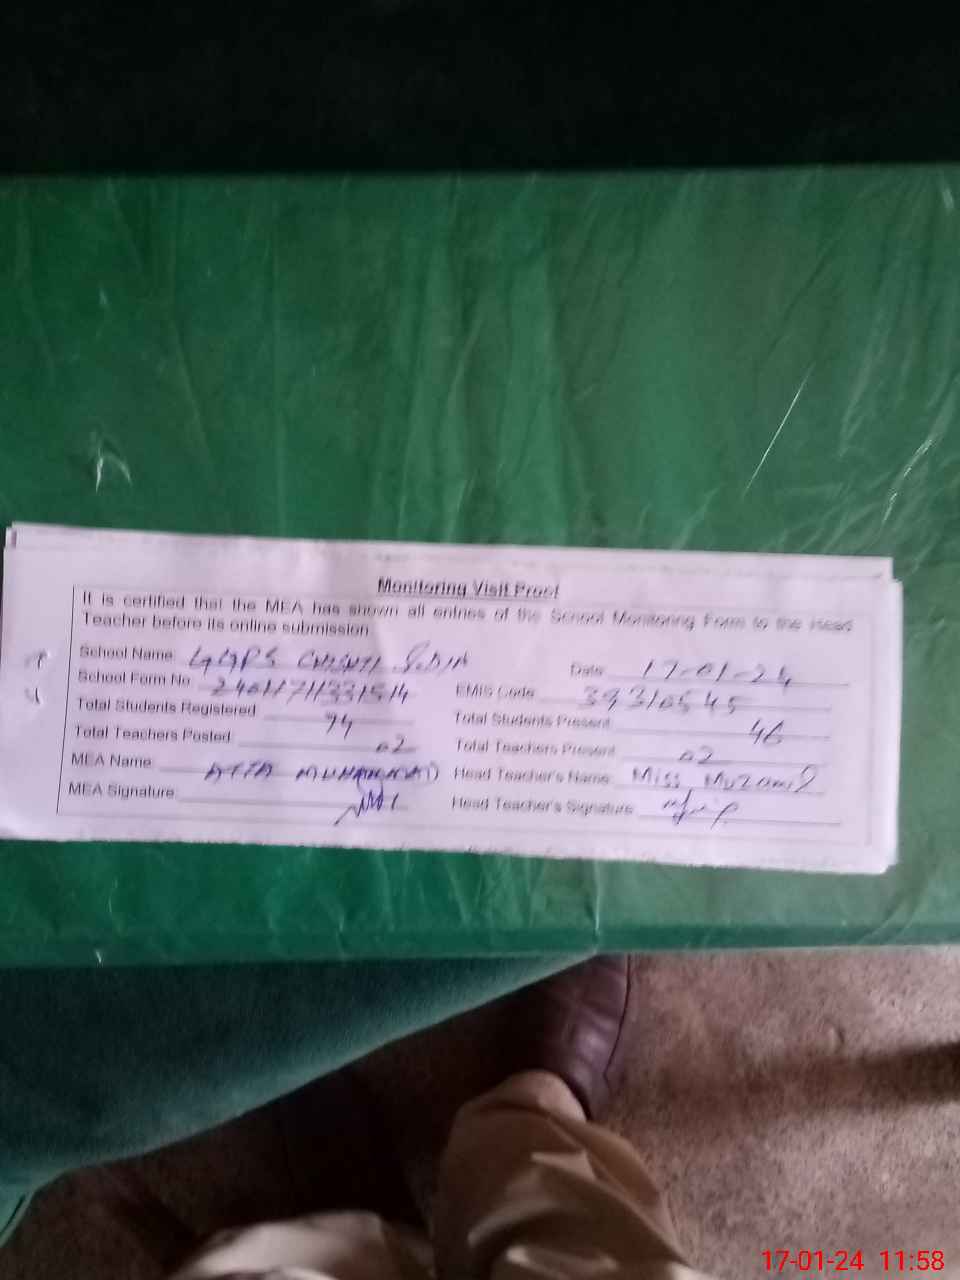 Monitoring Visit Proof
It is certified that the MEA has shown all entries of the School Monitoring Form to the Head
Teacher before its online submission
School Name: GGPS Date: 17-01-24
School Form No. EMIS Code 39310545
Total Students Registered 94 Total Students Present 46
Total Teachers Posted: 02 Total Teachers Present 02
MEA Name: ATTA MUHAMMAD Head Teacher's Name: Miss Muzamil
MEA Signature: Head Teacher's Signature
17-01-24 11:58